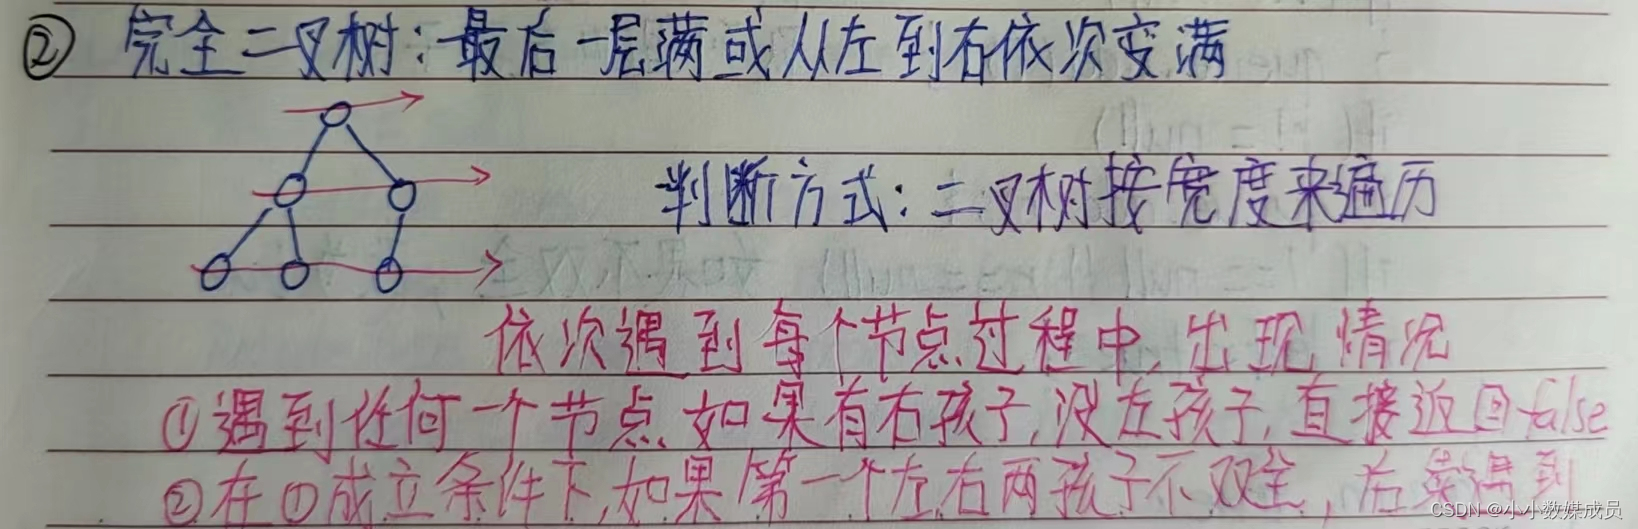 ② 完全二叉树：最后一层满或从左到右依次变满
判断方式：二叉树按宽度来遍历
依次遇到每个节点过程中，出现情况
①遇到任何一个节点，如果有右孩子，没左孩子，直接返回false
②在①成立条件下，如果第一个左右两孩子不双全，后续遇到
CSDN @小小数媒成员